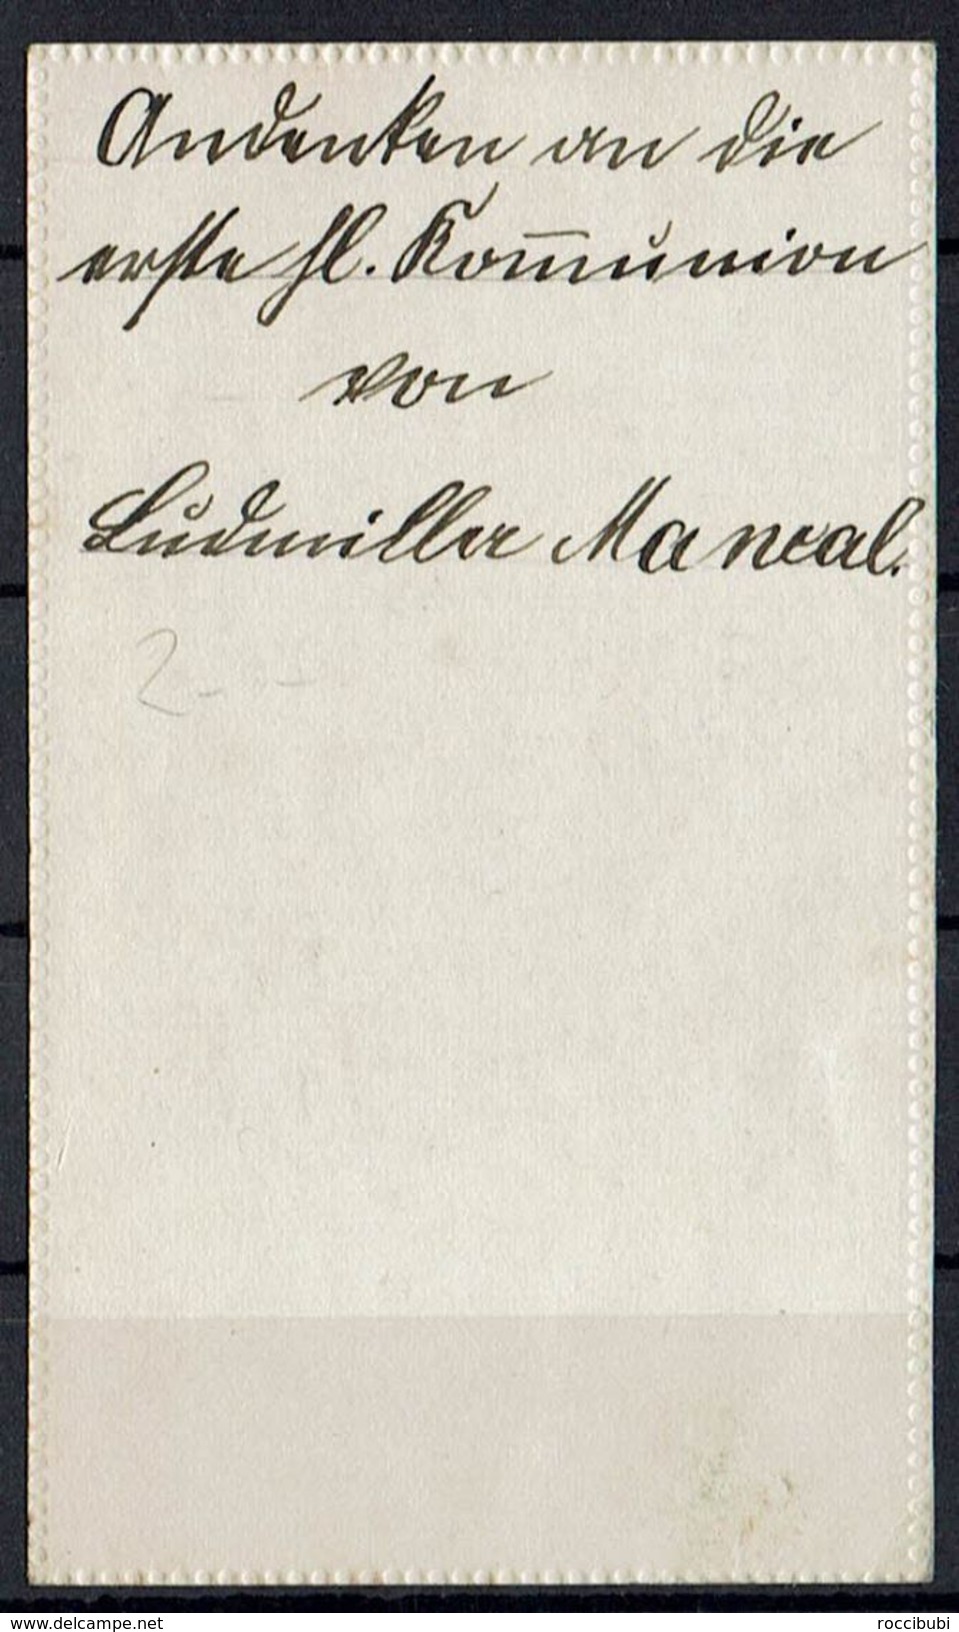 Andenken an die
erste hl. Kom̅union
von
Ludmiller Maneal.
2 - -
delcampe.net
roccibubi